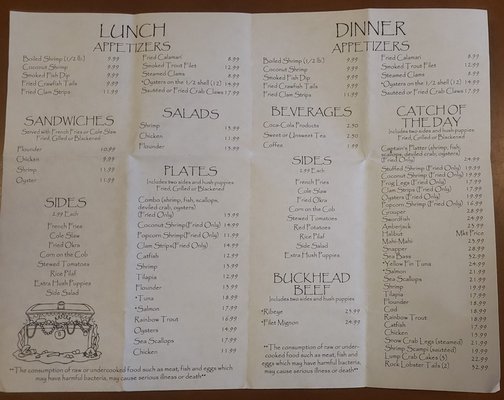 LUNCH
APPETIZERS
Boiled Shrimp (1/2 lb) 9.99
Coconut Shrimp 9.99
Smoked Fish Dip 9.99
Fried Crawfish Tails 9.99
Fried Clam Strips 11.99
Fried Calamari 8.99
Smoked Trout Filet 12.99
Steamed Clams 8.99
*Oysters on the 1/2 shell (12) 14.99
Sautéed or Fried Crab Claws 17.99
SANDWICHES
Served with French Fries or Cole Slaw
Fried, Grilled or Blackened
Flounder 10.99
Chicken 9.99
Shrimp 11.99
Oyster 11.99
SIDES
2.99 Each
French Fries
Cole Slaw
Fried Okra
Corn on the Cob
Stewed Tomatoes
Rice Pilaf
Extra Hush Puppies
Side Salad
SALADS
Shrimp 13.99
Chicken 11.99
Flounder 13.99
PLATES
Includes two sides and hush puppies
Fried, Grilled or Blackened
Combo (shrimp, fish, scallops,
deviled crab, oysters)
(Fried Only) 15.99
Coconut Shrimp(Fried Only) 14.99
Popcorn Shrimp(Fried Only) 11.99
Clam Strips(Fried Only) 14.99
Catfish 12.99
Shrimp 13.99
Tilapia 12.99
Flounder 13.99
*Tuna 18.99
*Salmon 17.99
Rainbow Trout 16.99
Oysters 14.99
Sea Scallops 17.99
Chicken 11.99
**The consumption of raw or undercooked food such as meat, fish and eggs which
may have harmful bacteria, may cause serious illness or death**
DINNER
APPETIZERS
Boiled Shrimp (1/2 lb) 9.99
Coconut Shrimp 9.99
Smoked Fish Dip 9.99
Fried Crawfish Tails 9.99
Fried Clam Strips 11.99
Fried Calamari 8.99
Smoked Trout Filet 12.99
Steamed Clams 8.99
*Oysters on the 1/2 shell (12) 14.99
Sautéed or Fried Crab Claws 17.99
BEVERAGES
Coca-Cola Products 2.50
Sweet or Unsweet Tea 2.50
Coffee 1.99
SIDES
2.99 Each
French Fries
Cole Slaw
Fried Okra
Corn on the Cob
Stewed Tomatoes
Red Potatoes
Rice Pilaf
Side Salad
Extra Hush Puppies
BUCKHEAD
BEEF
Includes two sides and hush puppies
*Ribeye 23.99
*Filet Mignon 24.99
**The consumption of raw or under-
cooked food such as meat, fish and
eggs which may have harmful bacteria,
may cause serious illness or death**
CATCH OF
THE DAY
Includes two sides and hush puppies
Fried, Grilled or Blackened
Captain's Platter (shrimp, fish,
scallops, deviled crab, oysters)
(Fried Only) 24.99
Stuffed Shrimp (Fried Only) 19.99
Coconut Shrimp (Fried Only) 19.99
Frog Legs (Fried Only) 17.99
Clam Strips (Fried Only) 17.99
Oysters (Fried Only) 19.99
Popcorn Shrimp (Fried Only) 15.99
Grouper 28.99
Swordfish 24.99
Amberjack 23.99
Halibut Mkt Price
Mahi-Mahi 23.99
Snapper 28.99
Sea Bass 32.99
*Yellow Fin Tuna 24.99
*Salmon 21.99
Sea Scallops 21.99
Shrimp 19.99
Tilapia 17.99
Flounder 18.99
Cod 18.99
Rainbow Trout 18.99
Catfish 17.99
Chicken 15.99
Snow Crab Legs (steamed) 21.99
Shrimp Scampi (sautéed) 19.99
Lump Crab Cakes (3) 22.99
Rock Lobster Tails (2) 32.99